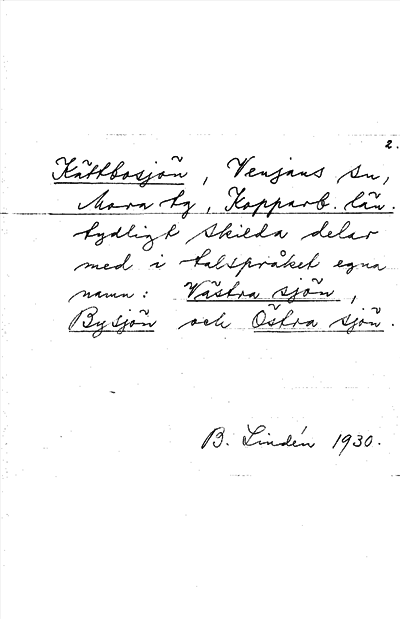 2.
Kättbosjön, Venjans sn,
Mora tg, Kopparb. län.
tydligt skilda delar
med i talspråket egna
namn: Västra sjön,
Bysjön och Östra sjön.
B. Lindén 1930.